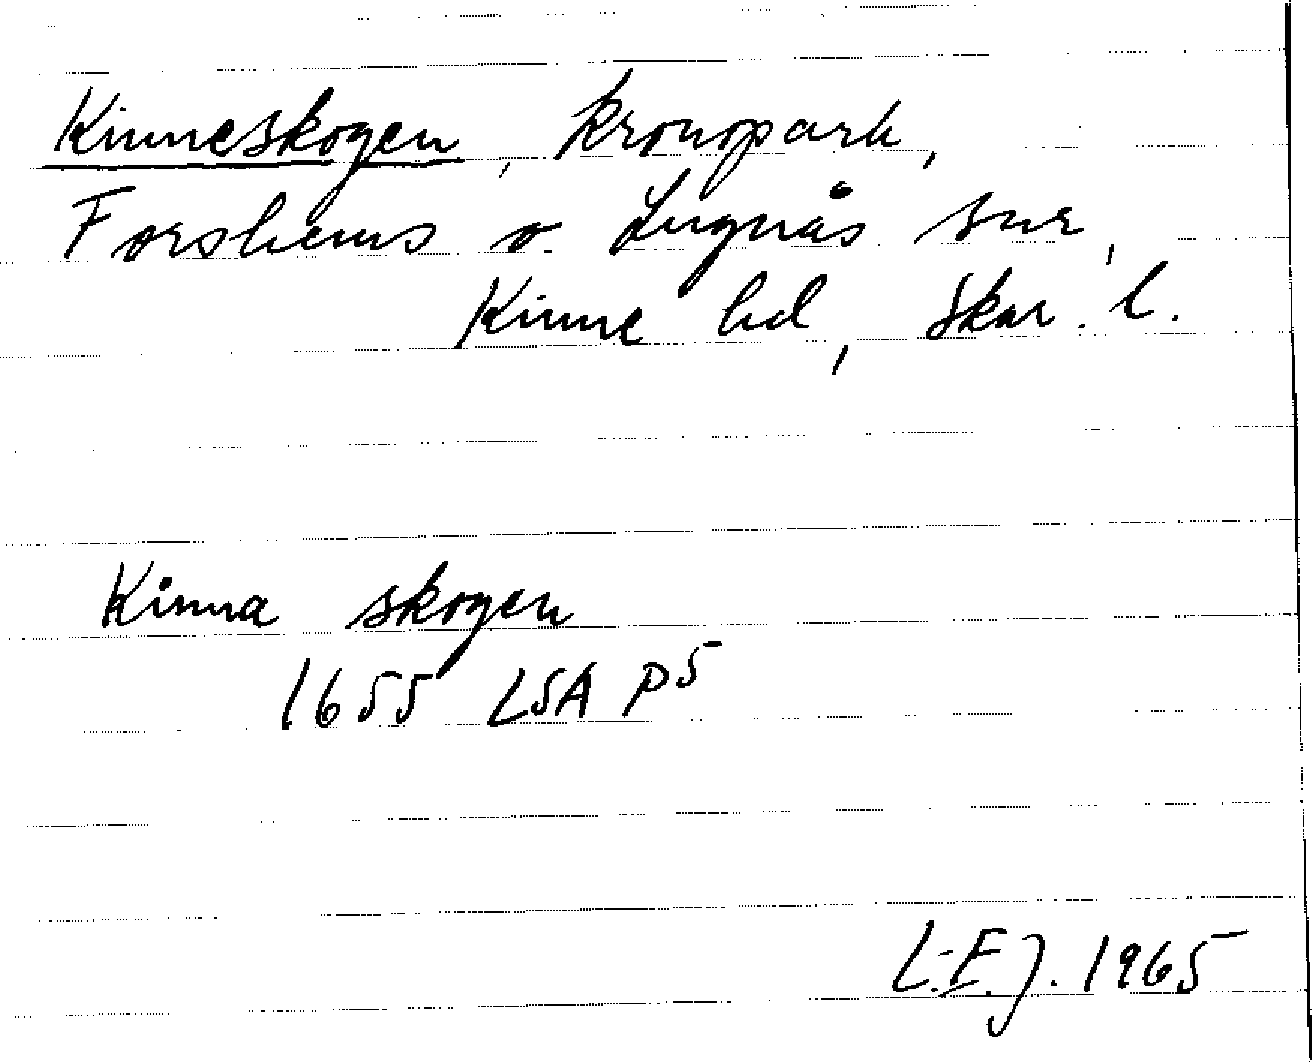 Kinneskogen, kronopark,
Forshems o. Lugnås snr,
Kinne hd, Skar. l.
Kinna skogen
1655 LSA P5
L.E.J. 1965